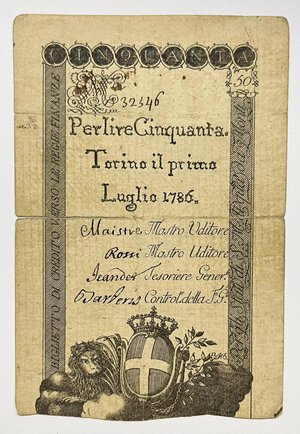 CINQUANTA
50
32546
Per lire Cinquanta.
Torino il primo
Luglio 1786.
Maistre Mastro Uditore
Roni Mastro Uditore
Jeandet Tesoriere Gener.
Barberis Control. della T. G.
BIGLIETTO DI CREDITO VERSO LE REGIE FINANZE